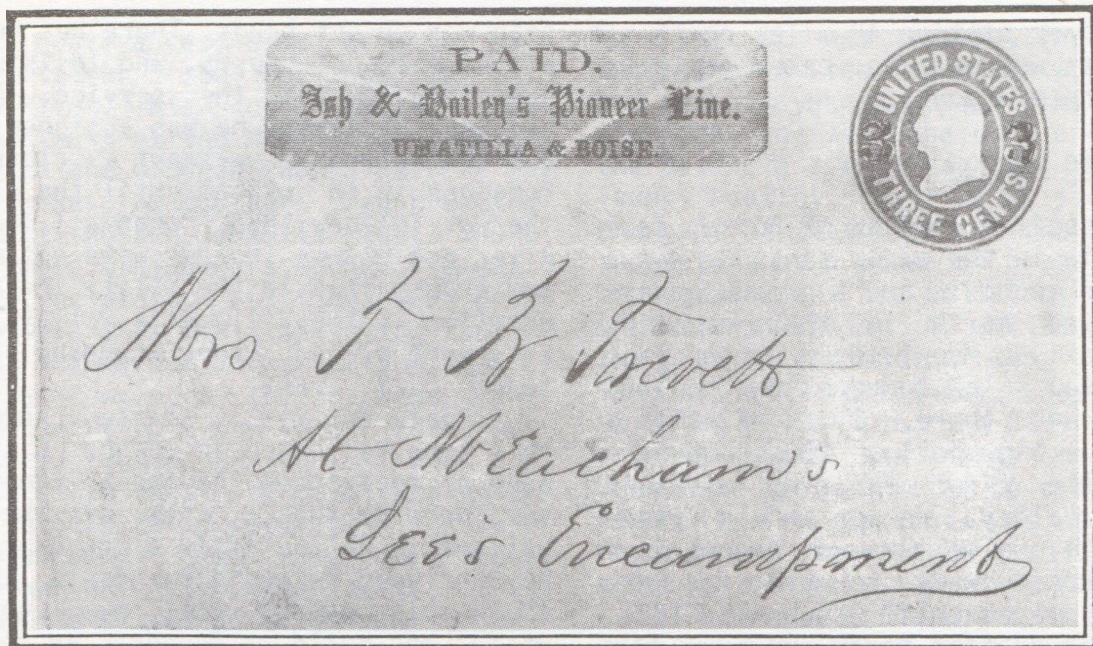 PAID.
Ish & Hailey's Pioneer Line.
UMATILLA & BOISE.
UNITED STATES
3 3
THREE CENTS
Mrs T Trevett
At Meacham's
Lee's Encampment